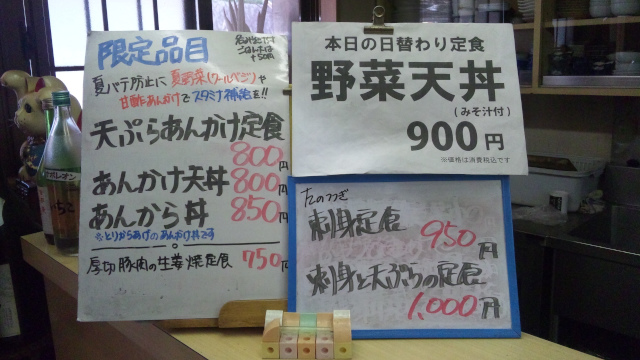 限定品目
夏バテ防止に 夏野菜(クールベジ)や
甘酢あんかけでスタミナ補給を!!
天ぷらあんかけ定食
800円
あんかけ天丼 800円
あんから丼 850円
※とりからあげのあんかけ丼です
厚切豚肉の生姜焼定食 750円
本日の日替わり定食
野菜天丼
(みそ汁付)
900円
※価格は消費税込です
刺身定食 950円
刺身と天ぷらの定食
1,000円